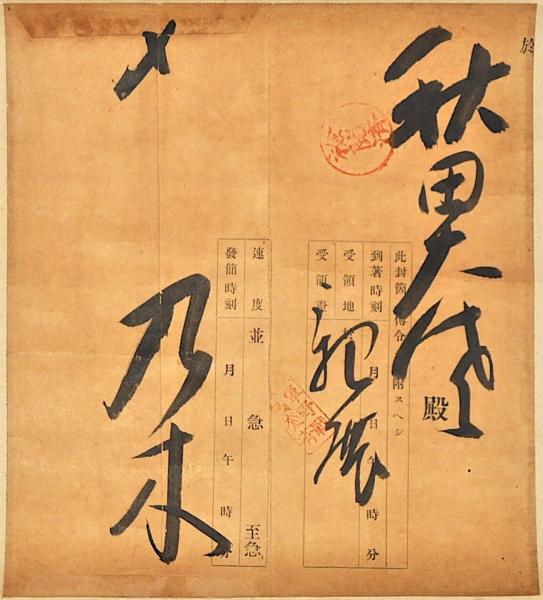 於
秋田大
殿
此封筒 傳令 附スヘシ
到著時刻 月 日 午 時 分
受領地
受領證
親展
速度 並 急 至急
發簡時刻 月 日 午 時 分
乃木
〆